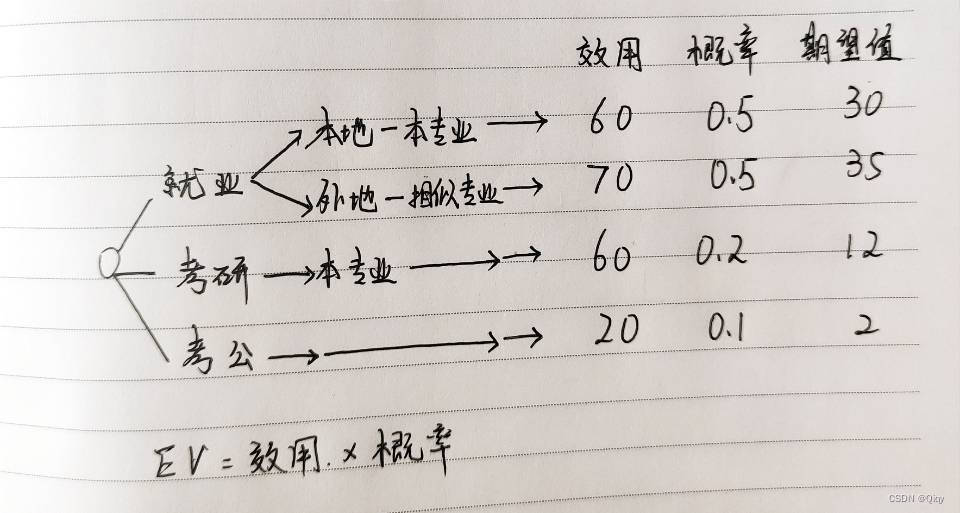 效用 概率 期望值
本地－本专业 60 0.5 30
就业
外地－相似专业 70 0.5 35
考研 本专业 60 0.2 12
考公 20 0.1 2
EV = 效用 × 概率
CSDN @Qiqy